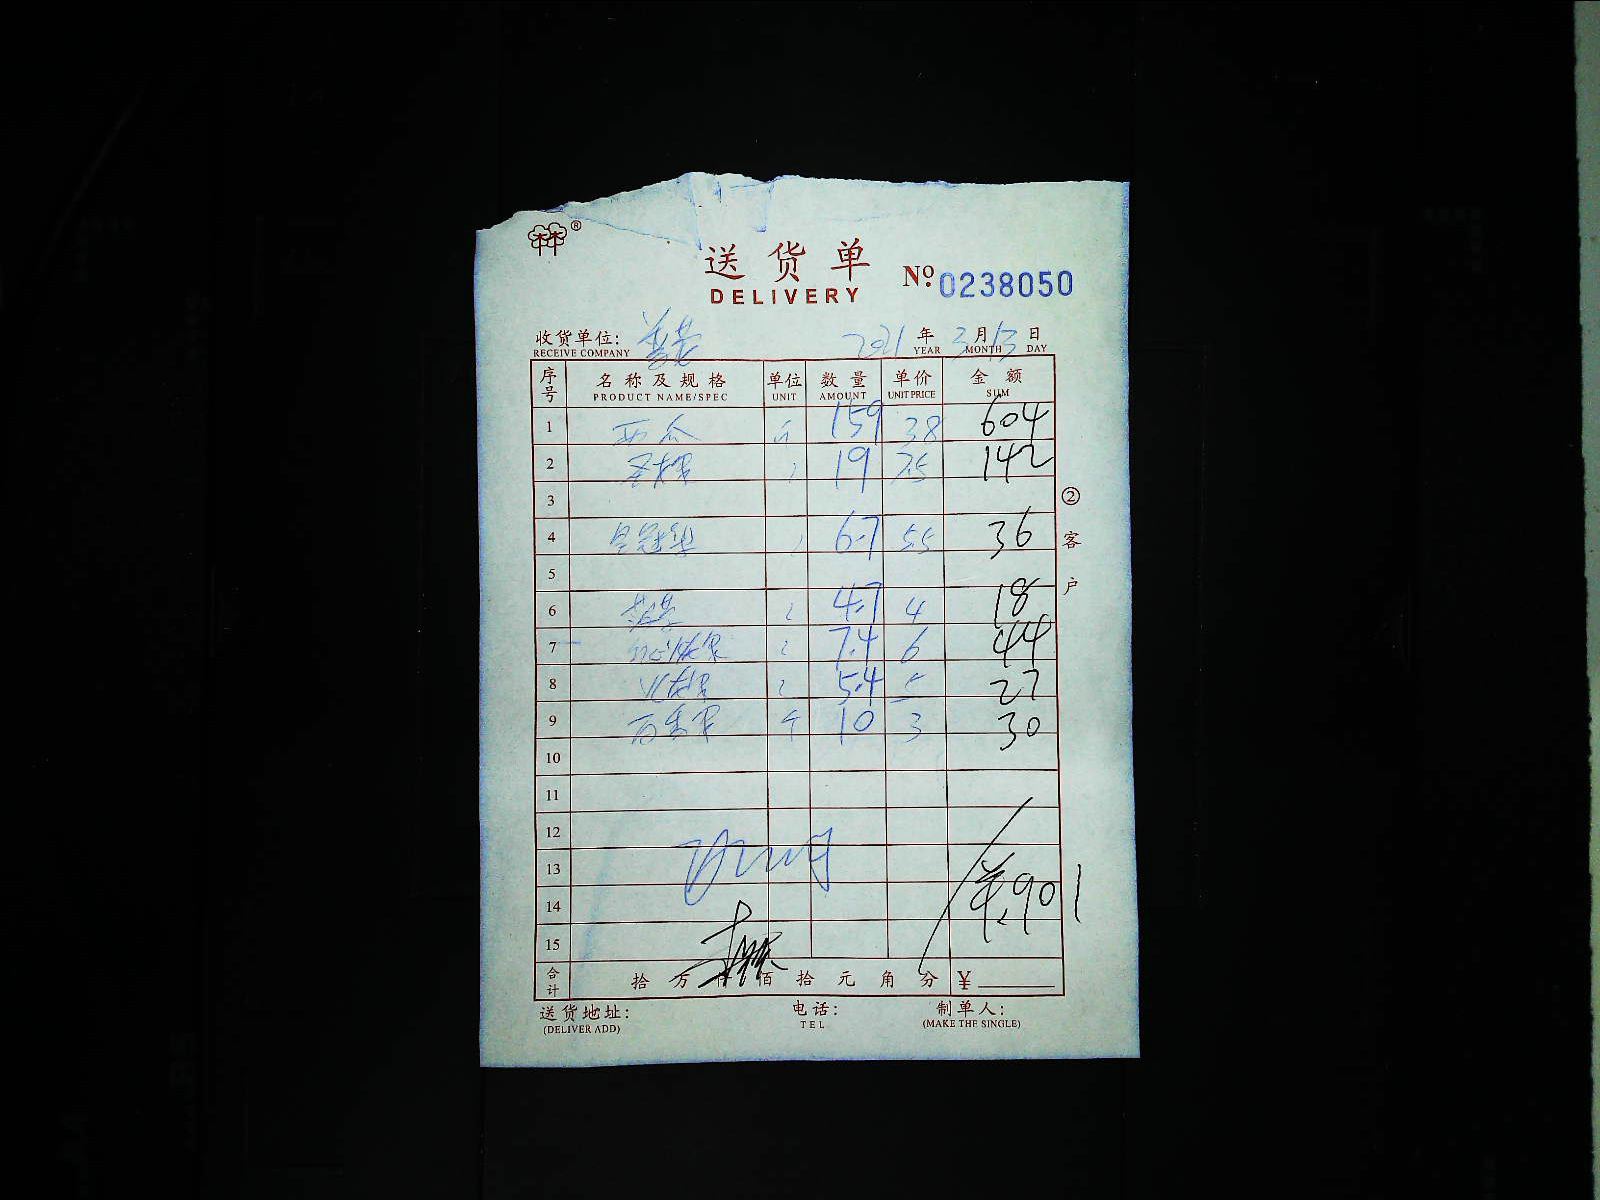 ®
送货单
DELIVERY
Nº 0238050
收货单位: 2021 年 3 月 13 日
RECEIVE COMPANY YEAR MONTH DAY
序号 名称及规格 单位 数量 单价 金额
PRODUCT NAME/SPEC UNIT AMOUNT UNIT PRICE SUM
1 西瓜 斤 159 38 604
2 19 7.5 142
3
4 6.7 55 36
5
6 4.7 4 18
7 7.4 6 44
8 5.4 5 27
9 百香果 个 10 3 30
10
11
12
13
14 901
15
合计 拾 万 仟 佰 拾 元 角 分 ¥
② 客户
送货地址: 电话: 制单人:
(DELIVER ADD) TEL (MAKE THE SINGLE)